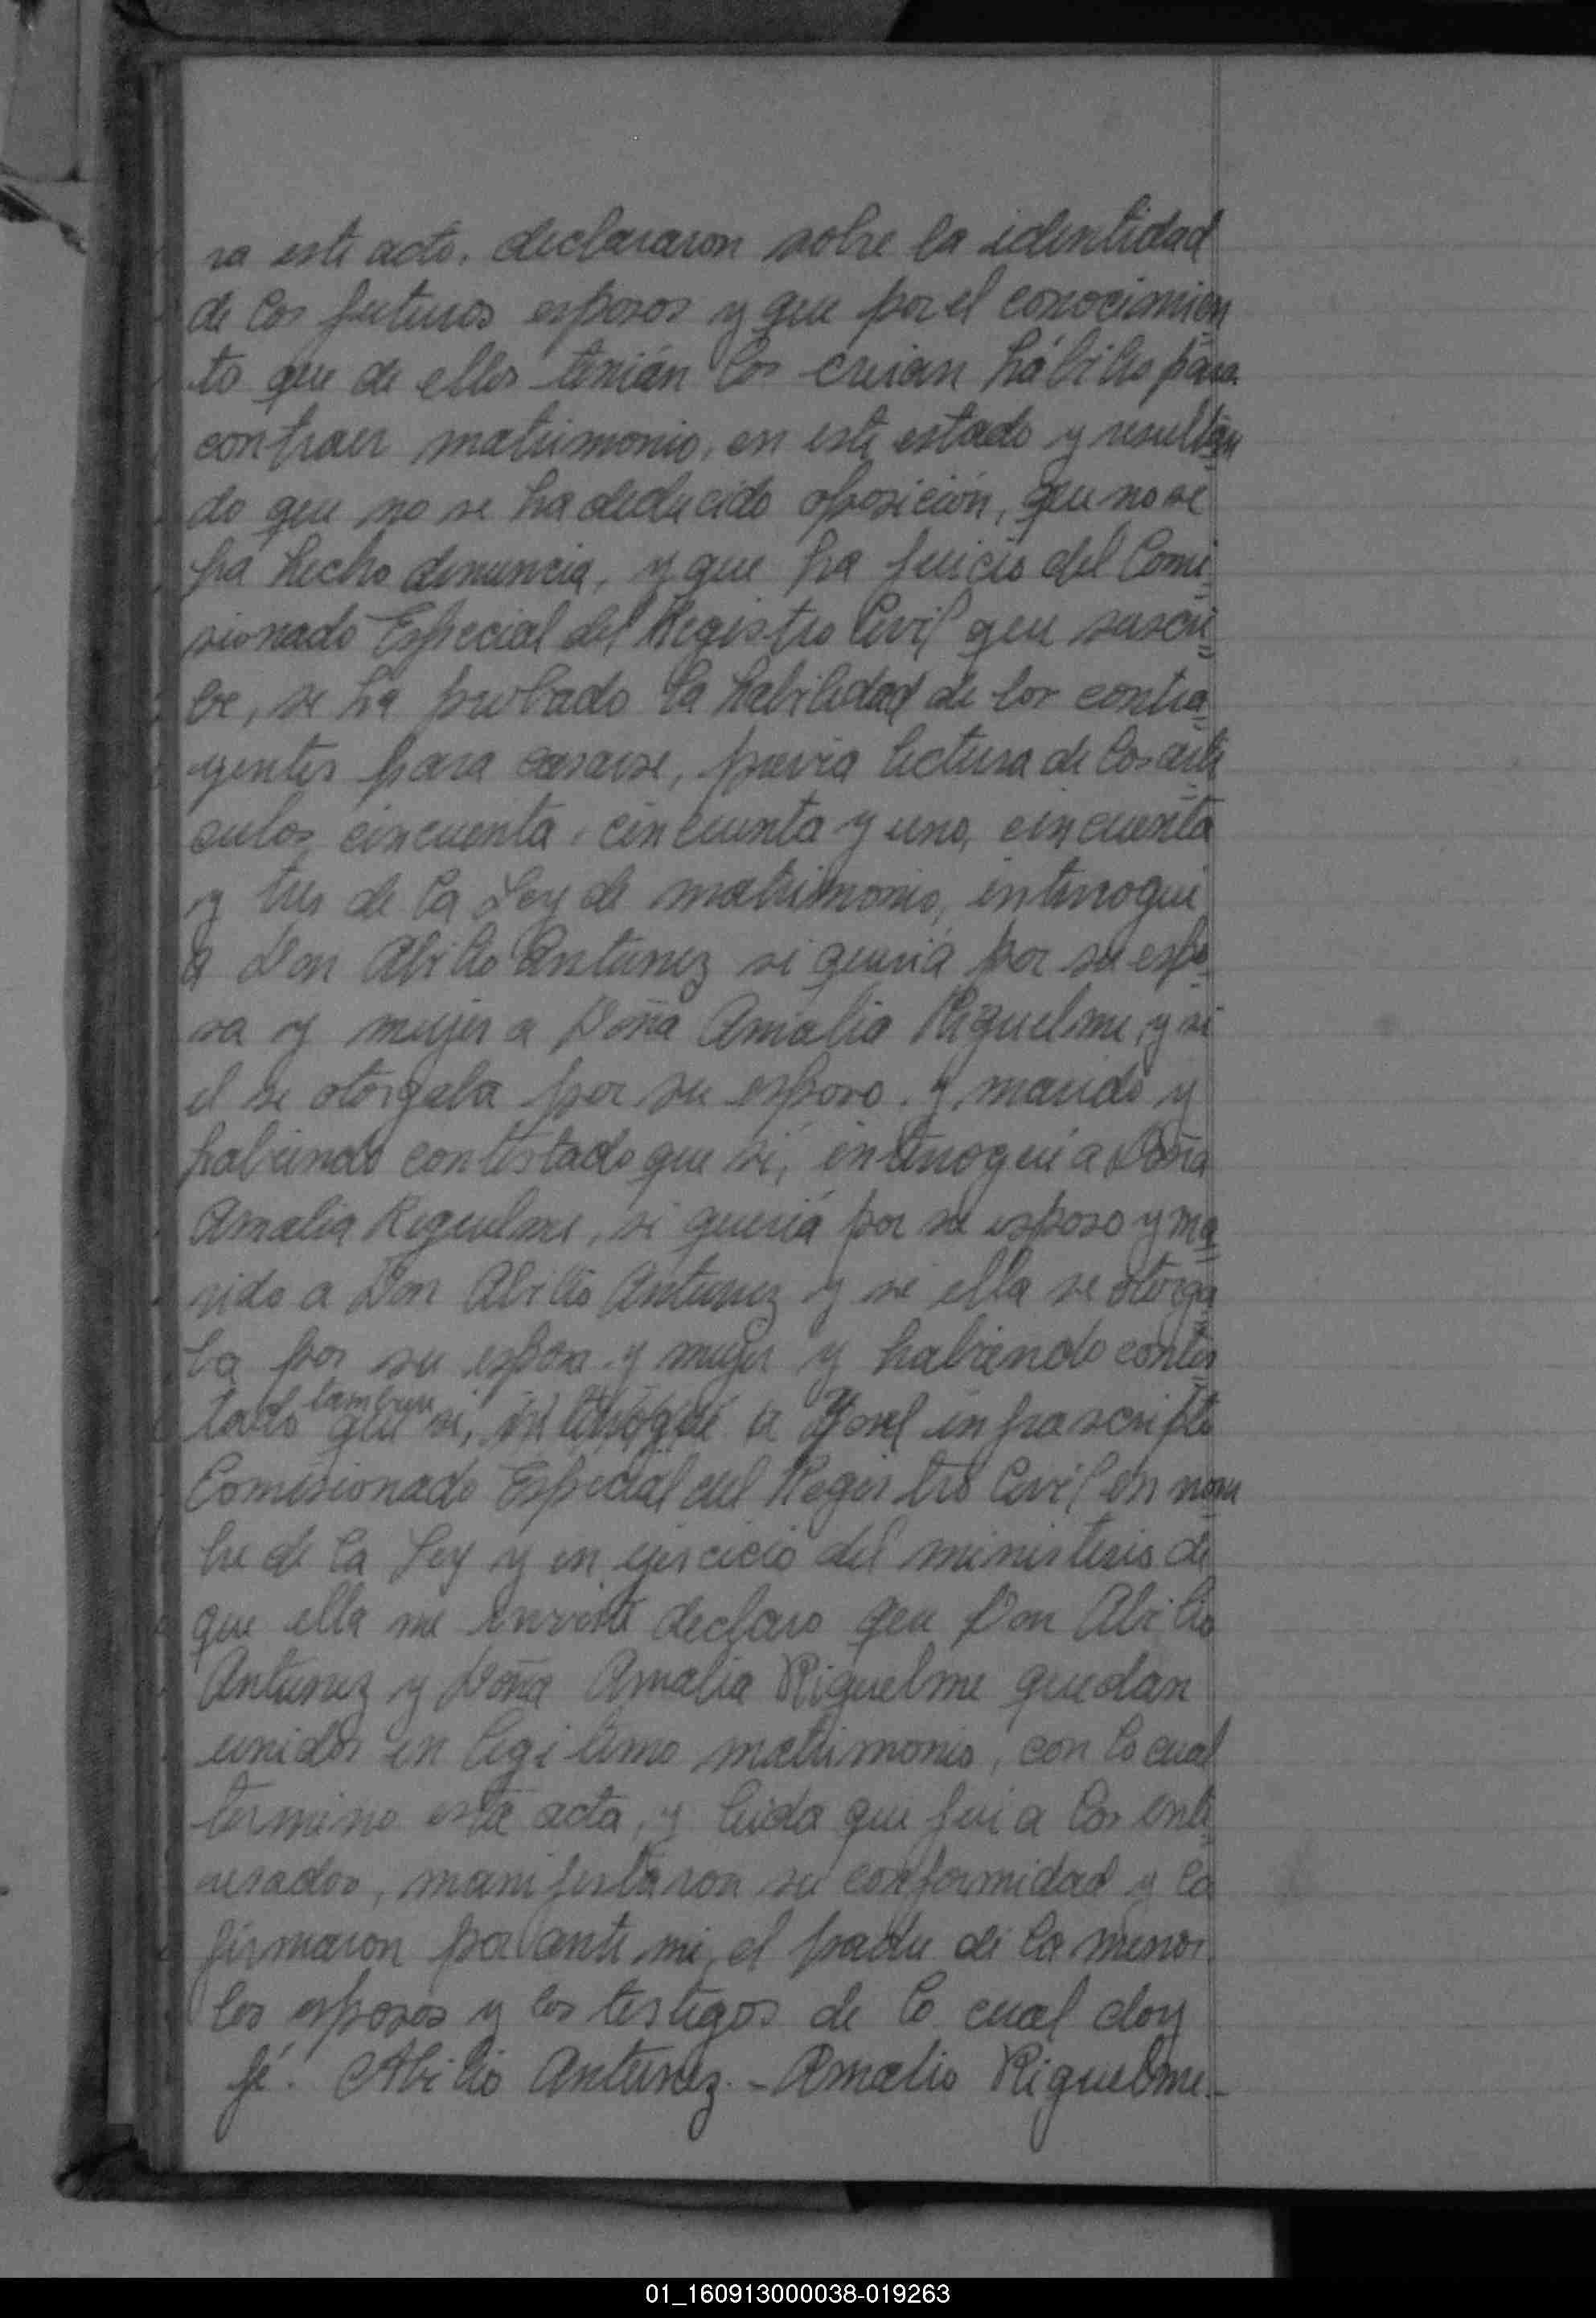 ra este acto, declararon sobre la identidad
de los futuros esposos y que por el conocimien
to que de ellos tenián los creian hábiles para
contraer matrimonio, en este estado y resultan
do que no se ha deducido oposición, que no se
ha hecho denuncia, y que ha juicio del Comi
sionado Especial del Registro Civil que suscri
be, se ha probado la habilidad de los contra
yentes para casarse, previa lectura de los arti
culos cincuenta, cincuenta y uno, cincuenta
y tres de la Ley de matrimonio, interrogue
a Don Abilio Antunez si queria por su espo
sa y mujer a Doña Amalia Riquelme, y si
el se otorgaba por su esposo y marido y
habiendo contestado que si, interrogue a Doña
Amalia Riquelme, si queriá por su esposo y ma
rido a Don Abilio Antunez y si ella se otorga
ba por su esposa y mujer y habiendo contes
tado tambien que si, interrogué a Yo el infrascripto
Comisionado Especial del Registro Civil en nom
bre de la Ley y en ejercicio del ministerio de
que ella me enviste declaro que Don Abilio
Antunez y Doña Amalia Riquelme quedan
unidos en legitimo matrimonio, con lo cual
termino esta acta, y leida que fui a los inte
resados, manifestaron su conformidad y la
firmaron por ante mi, el padre de la menor
los esposos y los testigos de lo cual doy
fé. Abilio Antunez - Amalia Riquelme -
01_160913000038-019263